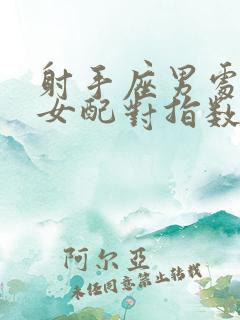 射手座男處
女配對指数
阿尔亚
未经同意禁止转载